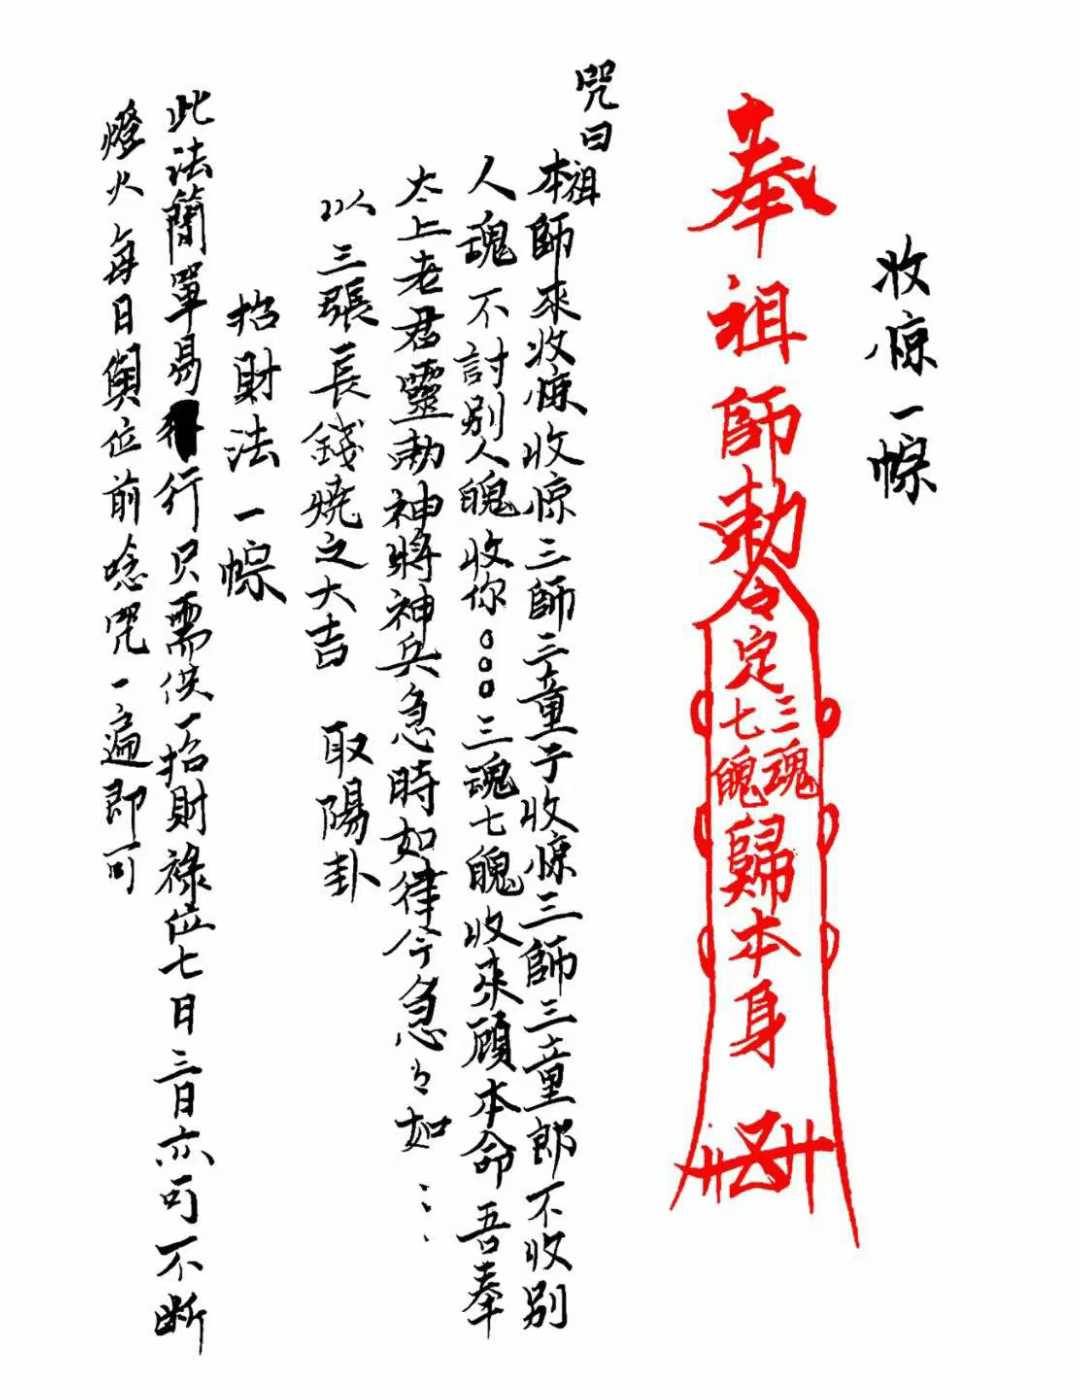 收惊一幖
奉祖師勅令定三魂七魄歸本身
咒曰
本祖師來收惊收惊三師三童子收惊三師三童郎不收別
人魂不討別人魄收你○○○三魂七魄收來顧本命吾奉
太上老君靈勅神將神兵急時如律令急々如……
以三張長錢燒之大吉 取陽卦
招財法一幖
此法簡單易行只需供一招財祿位七日三日亦可不断
燈火每日與位前唸咒一遍即可